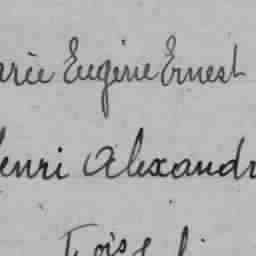 Marie Eugène Ernest
Henri Alexandre